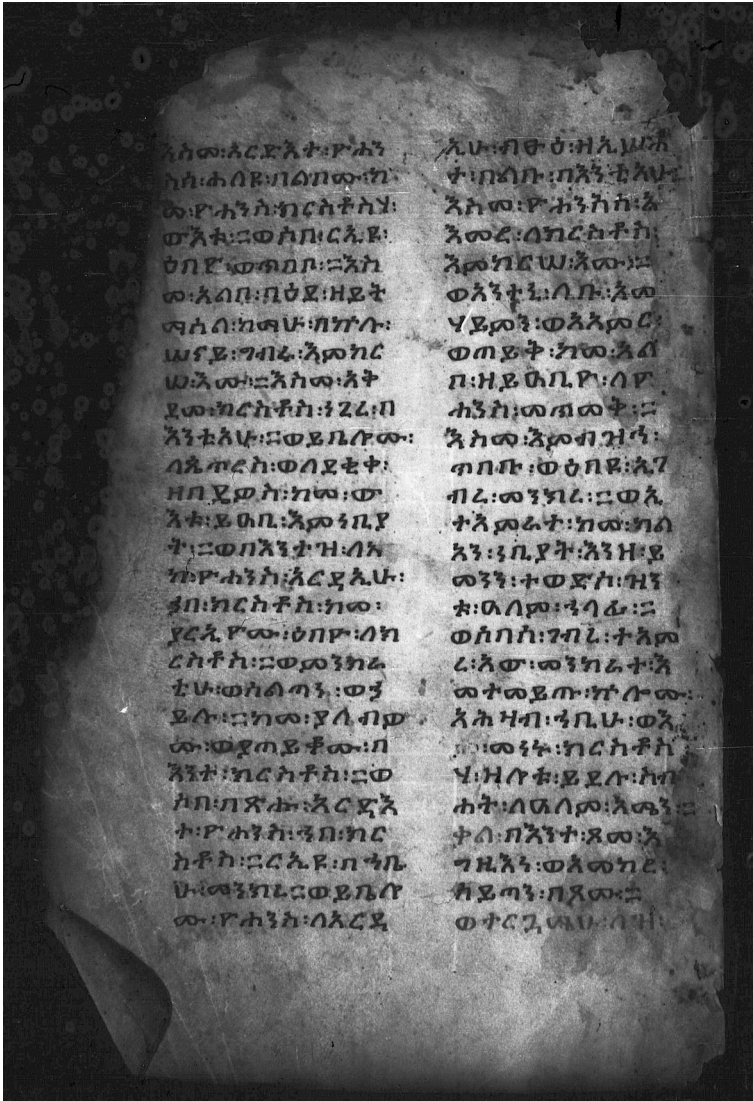 እስመ፡አርድእተ፡ዮሐን
ስሰ፡ሐለዩ፡በልቦሙ፡ከ
መ፡ዮሐንስ፡ክርስቶስሃ፡
ውእቱ፡።ወሶበ፡ርእዩ፡
ዕበዮ፡ወጥበቦ፡።እስ
መ፡አልቦ፡በዕደ፡ዘይት
ማሰል፡ከማሁ፡በኵሉ፡
ሠናይ፡ግብሩ፡እምከር
ሠ፡እሙ፡።እስመ፡አቅ
ደመ፡ክርስቶስ፡ነጊረ፡በ
እንቲአሁ፡።ወይቤሎሙ፡
ለጴጥሮስ፡ወለደቂቀ፡
ዘበዴዎስ፡ከመ፡ው
እቱ፡ይዐቢ፡እምነቢያ
ት፡።ወበእንተዝ፡ለአ
ከ፡ዮሐንስ፡አርዲኢሁ፡
ኀበ፡ክርስቶስ፡ከመ፡
ያርኢዮሙ፡ዕበዮ፡ለክ
ርስቶስ፡።ወምንክራ
ቲሁ፡ወስልጣኑ፡ወኃ
ይሉ፡።ከመ፡ያለብዎ
ሙ፡ወያጠይቆሙ፡በ
እንተ፡ክርስቶስ፡።ወ
ሶበ፡በጽሑ፡አርዲእ
ተ፡ዮሐንስ፡ኀበ፡ክር
ስቶስ፡።ርእዩ፡በኀቤ
ሁ፡መንክረ።ወይቤሎ
ሙ፡ዮሐንስ፡ለአርዲ
ኢሁ፡ብፁዕ፡ዘኢሠሐ
ተ፡በልቡ፡በእንቲአሁ።
እስመ፡ዮሐንስሰ፡አ
እመረ፡ለክርስቶስ፡
እምከርሠ፡እሙ፡።
ወአንተኒ፡ለቡ፡እመ
ሃይምን፡ወአእምር፡
ወጠይቅ፡ከመ፡አል
ቦ፡ዘይዐቢዮ፡ለዮ
ሐንስ፡መጥመቅ፡።
እስመ፡እምብዝኀ፡
ጥበቡ፡ወዕበዩ፡ኢገ
ብረ፡መንክረ፡።ወኢ
ተአምራተ፡ከመ፡ክል
አን፡ነቢያት፡እንዘ፡ይ
መንን፡ተወድሶ፡ዝን
ቱ፡ዐለም፡ኀላፊ፡።
ወሶበሰ፡ገብረ፡ተአም
ረ፡አው፡መንክራተ፡እ
መተመይጡ፡ኵሎሙ፡
አሕዛብ፡ኀቢሁ፡ወእ
መነኑ፡ክርስቶስ
ሃ፡ዝሎቱ፡ይደሉ፡ስብ
ሐት፡ለዐለም፡አሜን፡።
ቀለ፡በእንተ፡ጾመ፡እ
ግዚእነ፡ወአመከረ፡
ሰይጣን፡በጾሙ፡።